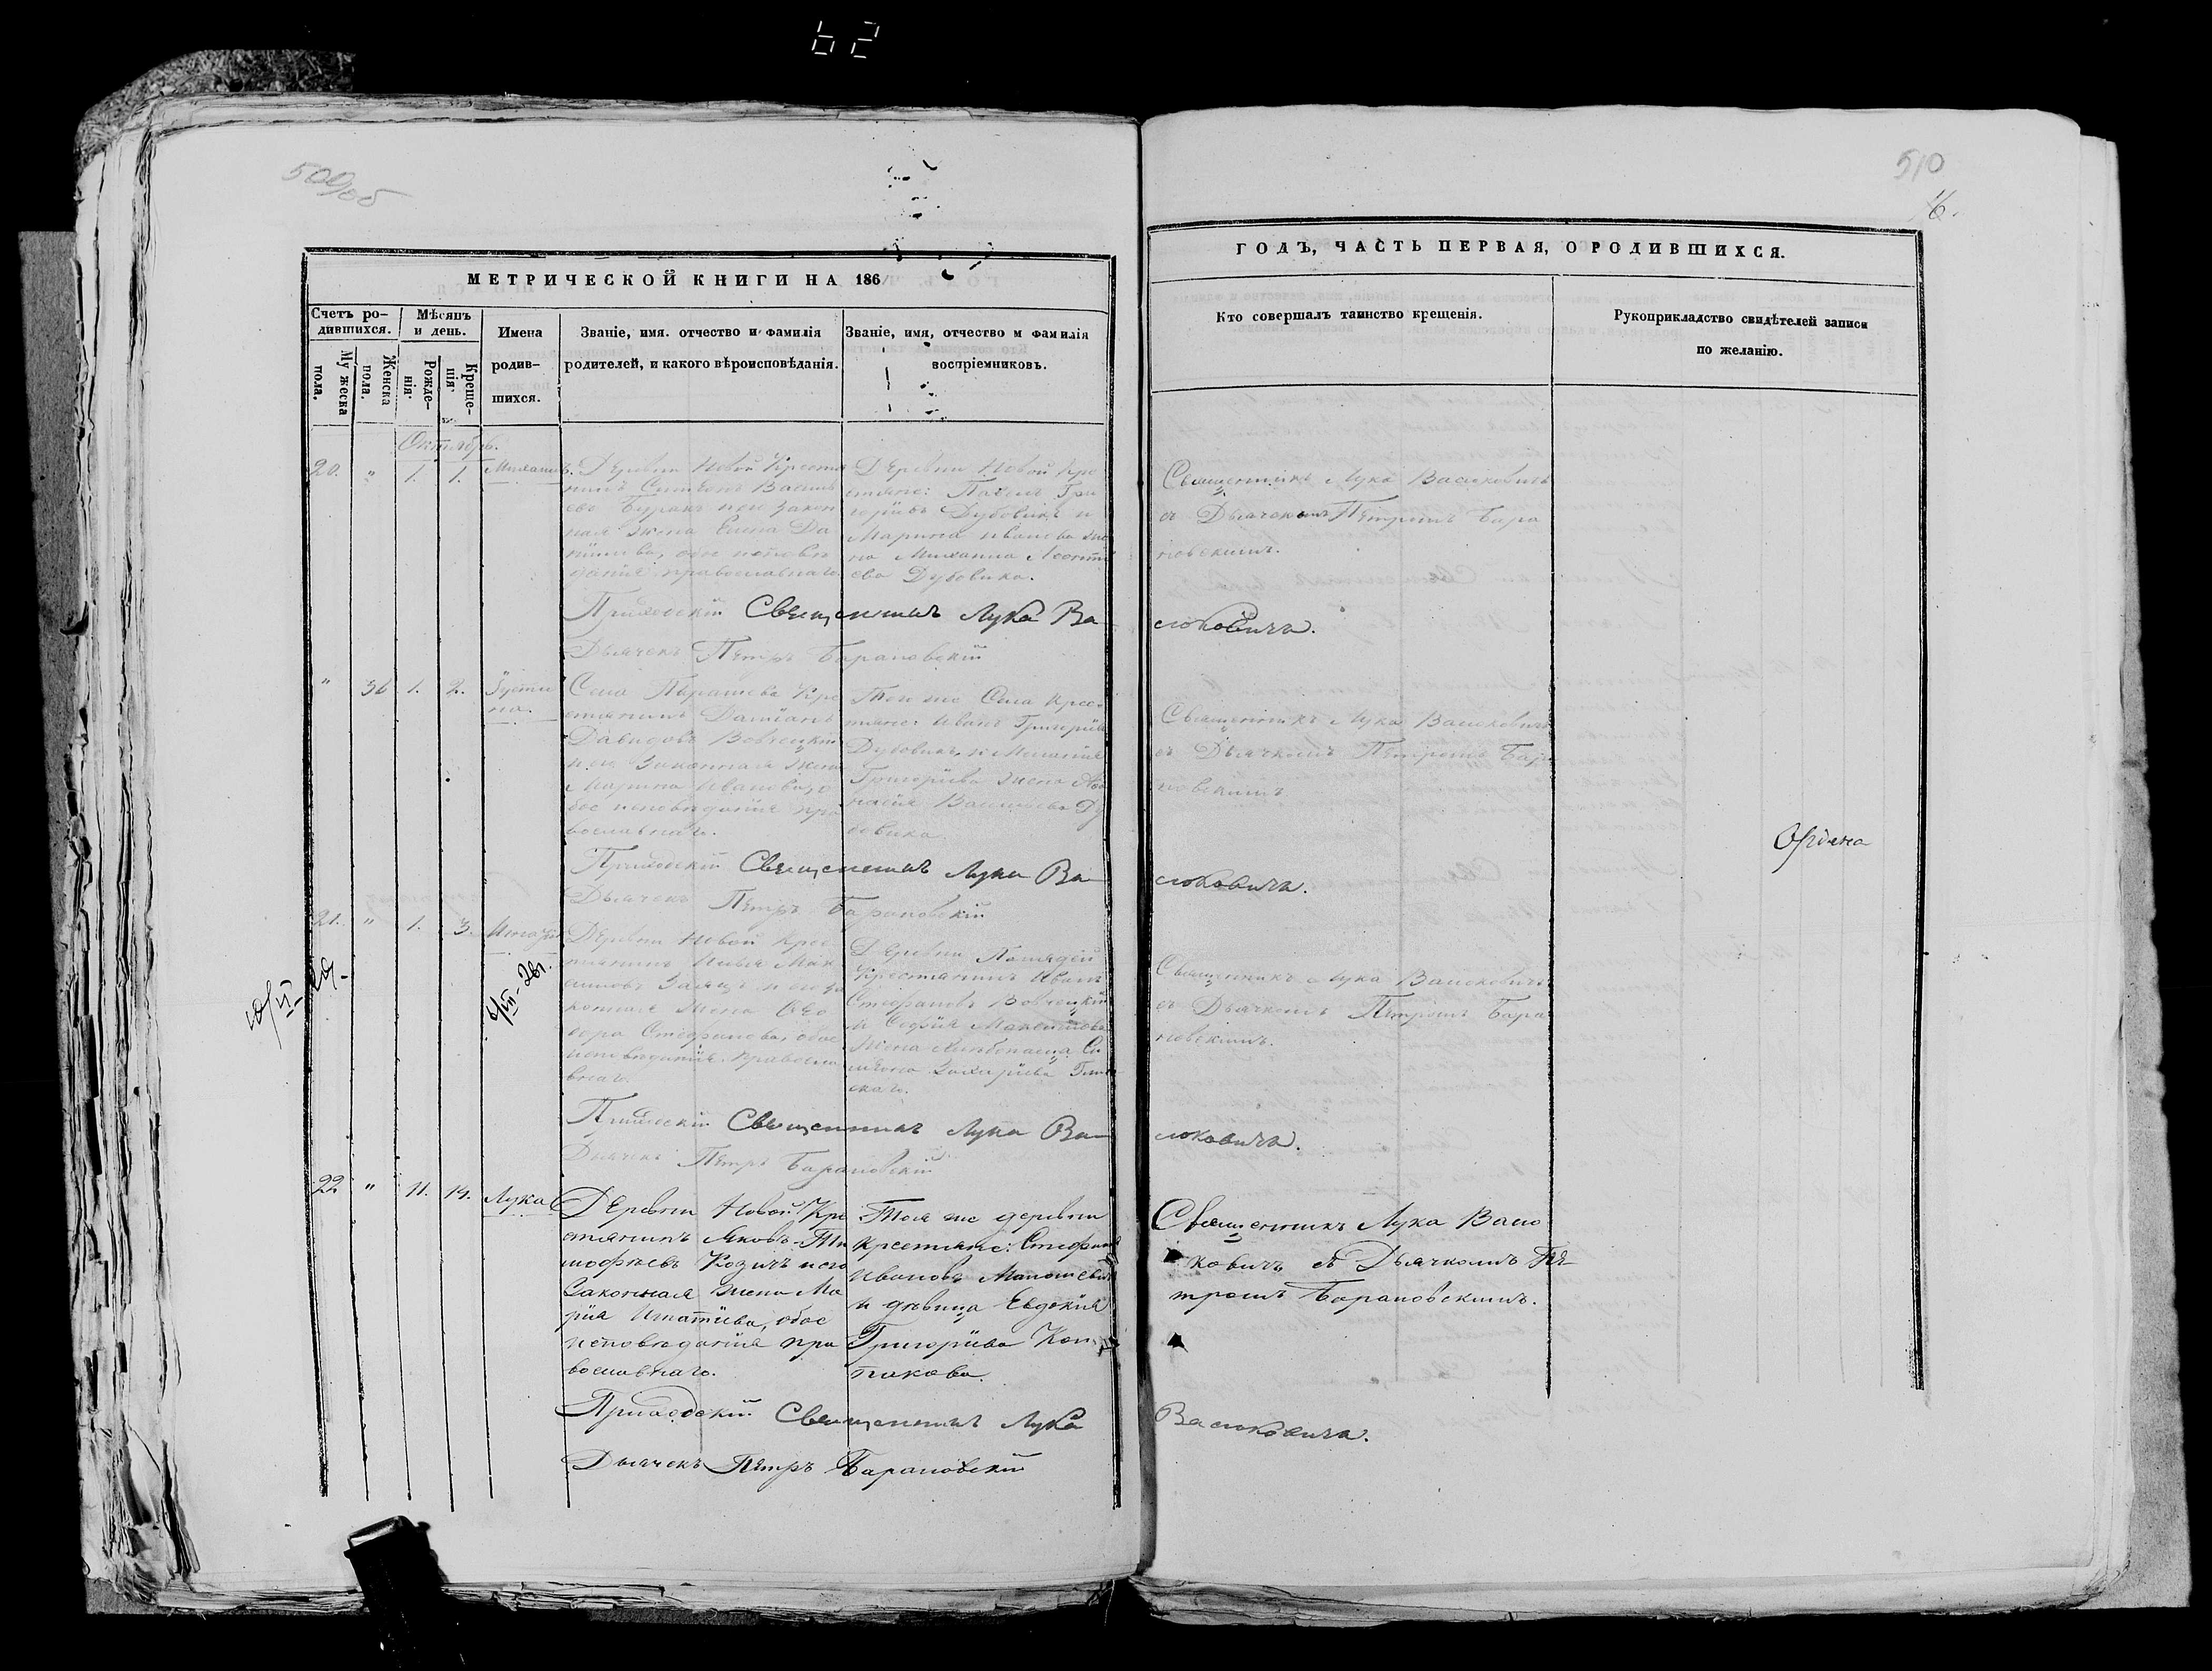 62
510
16.
МЕТРИЧЕСКОЙ КНИГИ НА 186
ГОДЪ, ЧАСТЬ ПЕРВАЯ, О РОДИВШИХСЯ.
Счетъ ро-
дившихся.
Мѣсяцъ
и день.
Имена
родив-
шихся.
Званіе, имя. отчество и фамилія
родителей, и какого вѣроисповѣданія.
Званіе, имя, отчество и фамилія
воспріемниковъ.
Му жеска
пола.
Женска
пола.
Рожде-
нія
Креще-
нія
Кто совершалъ таинство крещенія.
Рукоприкладство свидѣтелей записи
по желанію.
Октябрь.
20. " 1. 1. Михаилъ.
Деревни Новой Крестья
нинъ Симеонъ Василь
евъ Буракъ и его закон
ная жена Елена Да
обое исповѣ
данія православнаго.
Деревни Новой Кре
стьяне: Павелъ Гри
горіевъ Дубовикъ и
Марина Иванова же
на Михаила Леонті
ева Дубовика.
Священникъ Лука Васюковичъ
съ Дьячкомъ Петромъ Бара
новскимъ.
Приходскій Священникъ Лука Ва
сюковичъ.
Дьячекъ Петръ Барановскій
" 36 1. 2. Іусти
на.
Села Кре
стьянинъ Даміанъ
Давидовъ Вовчецкій
и его Законная жена
Марина Иванова, о
бое исповѣданія пра
вославнаго.
Того же Села Крес
тьяне: Иванъ Григоріевъ
Дубовикъ и Меланія
Григоріева жена
Васильева Ду
бовика.
Священникъ Лука Васюковичъ
съ Дьячкомъ Петромъ Бара
новскимъ
Приходскій Священникъ Лука Ва
сюковичъ.
Дьячекъ Петръ Барановскій
21. " 1. 3. Игнатій
Деревни Новой Крес
тьянинъ Илья Мак
симовъ Заяцъ и его за
конная жена Ѳео
дора Стефанова, обое
исповѣданія правосла
внаго.
Деревни
Крестьянинъ Иванъ
Стефановъ Вовчецкій
и Софія
жена Си
меона Захаріева
скаго.
Священникъ Лука Васюковичъ
съ Дьячкомъ Петромъ Бара
новскимъ.
Приходскій Священникъ Лука Ва
сюковичъ.
Дьячекъ Петръ Барановскій
22. " 11. 14. Лука
Деревни Новой Кре
стьянинъ Яковъ Ти
моѳеевъ Козичъ и его
Законная жена Ма
рія Игнатіева, обое
исповѣданія пра
вославнаго.
Тоя же деревни
крестьяне: Стефанъ
Ивановъ
и дѣвица Евдокія
Григоріева
Священникъ Лука Васю
ковичъ съ Дьячкомъ Пе
тромъ Барановскимъ.
Приходскій Священникъ Лука
Васюковичъ.
Дьячекъ Петръ Барановскій